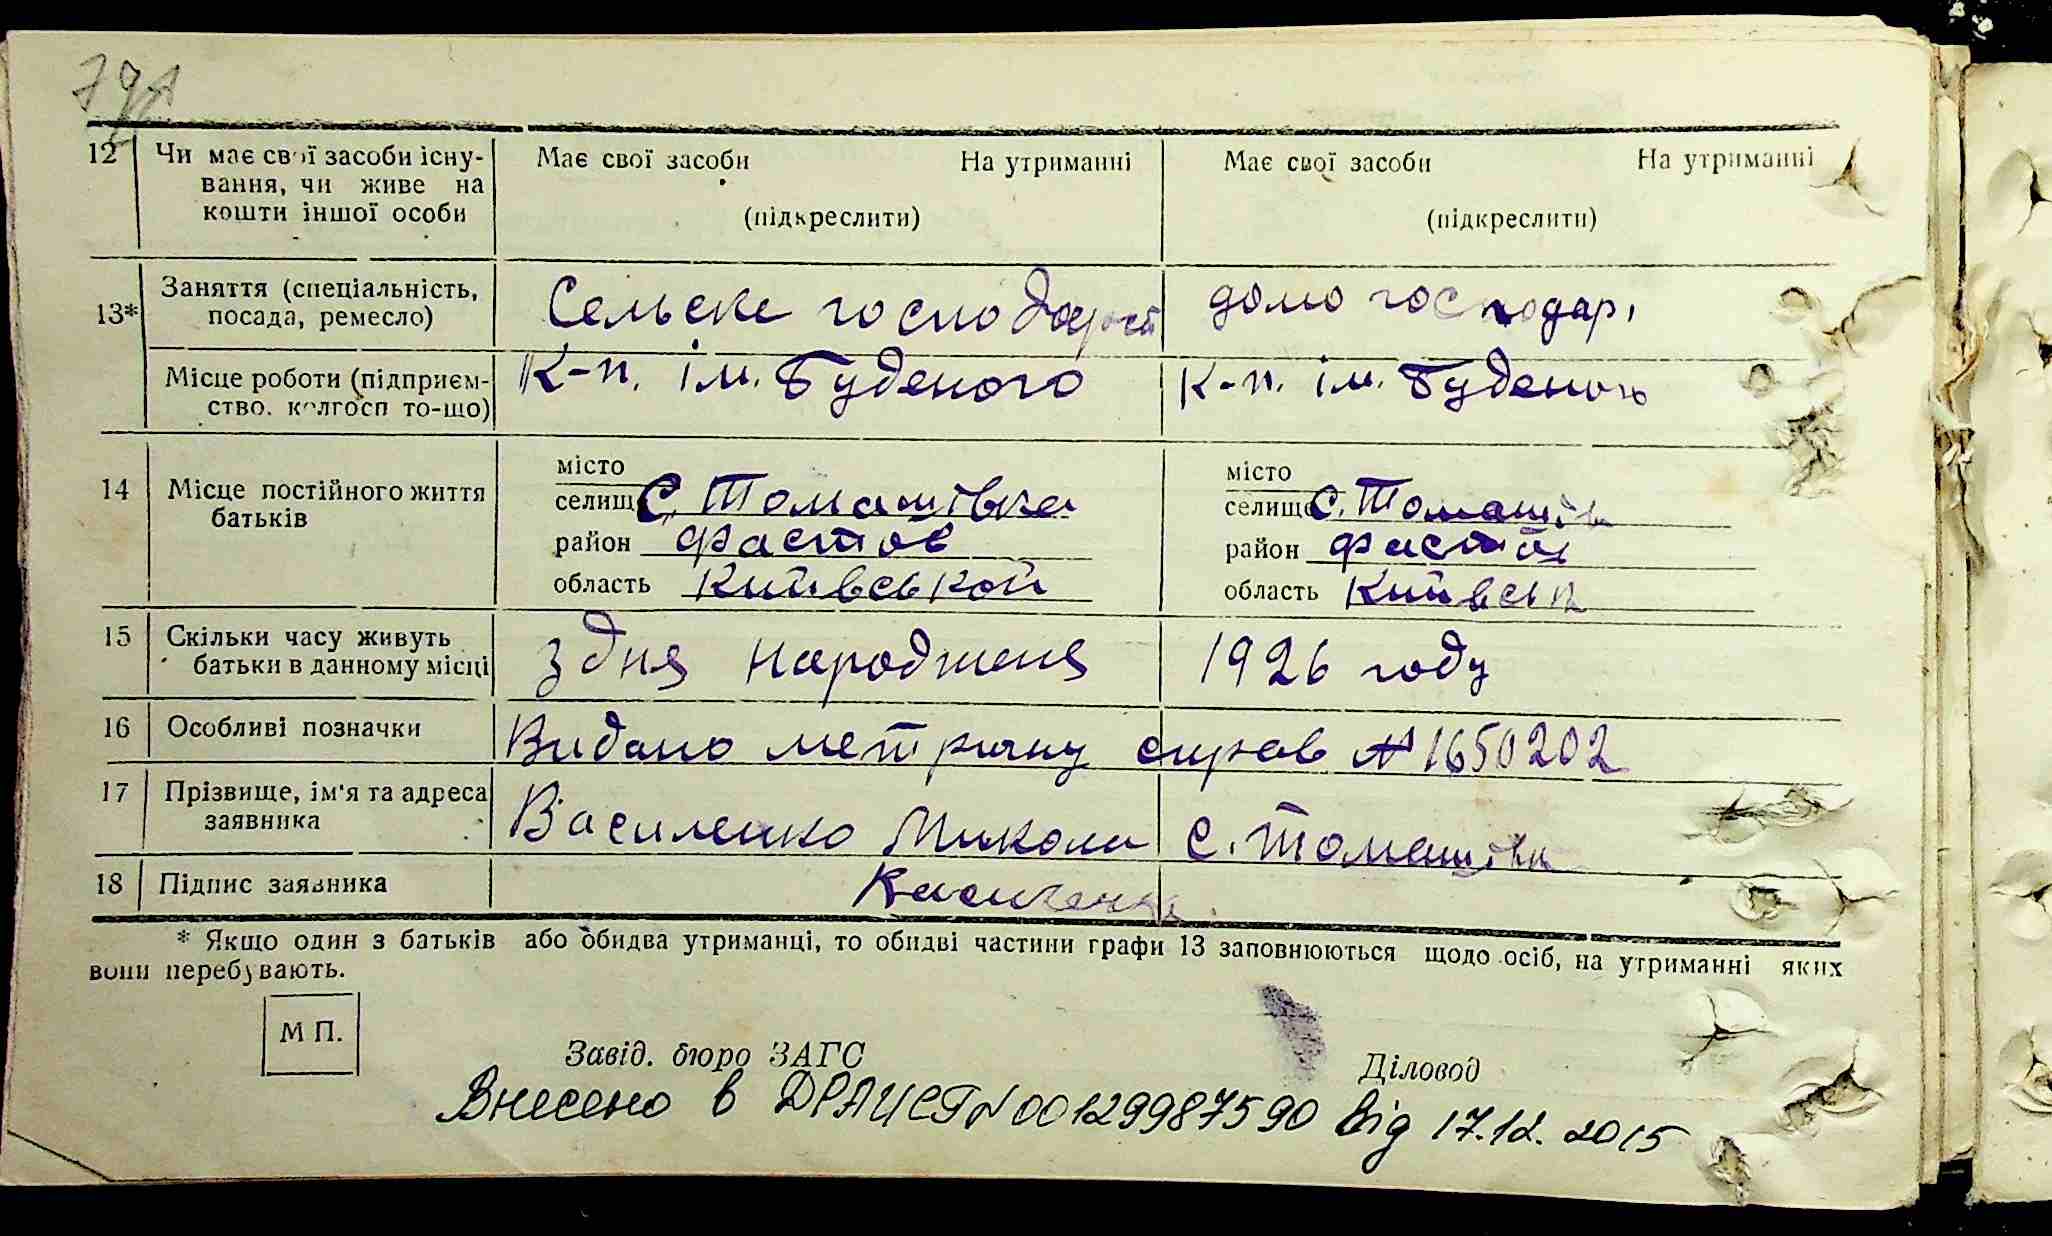 79
12 Чи має свої засоби існу- Має свої засоби На утриманні Має свої засоби На утриманні
вання, чи живе на
кошти іншої особи (підкреслити) (підкреслити)
13* Заняття (спеціальність, Сельске господарст домо господарі
посада, ремесло)
Місце роботи (підприєм- К-п. ім. Буденого К-п. ім. Буденого
ство, колгосп то-що)
місто місто
14 Місце постійного життя селищ С. Томашівка селище С. Томашівк
батьків район Фастов район Фастов
область Київськой область Київськ
15 Скільки часу живуть З дня народженя 1926 году
батьки в данному місці
16 Особливі позначки Видано метричну справ № 1650202
17 Прізвище, ім'я та адреса Василенко Микола С. Томашівка
заявника
18 Підпис заявника Василенко
* Якщо один з батьків або обидва утриманці, то обидві частини графи 13 заповнюються щодо осіб, на утриманні яких
вони перебувають.
М П.
Завід. бюро ЗАГС Діловод
Внесено в ДРАЦСГ N 00129987590 від 17.12.2015